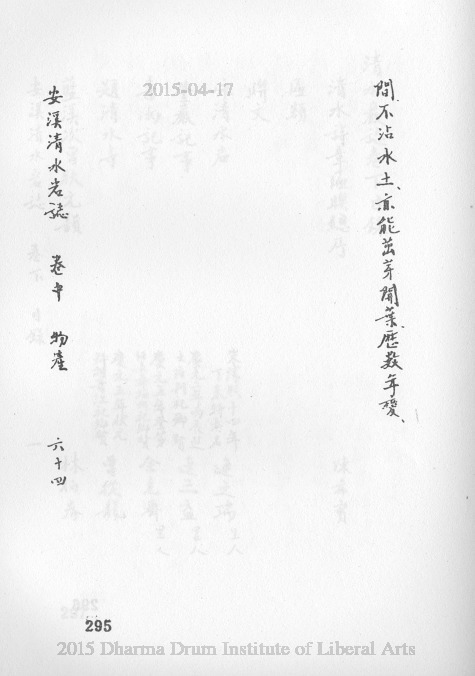 2015-04-17
間、不沾水土、亦能茁芽開葉、歷數年
安溪清水岩誌 卷中 物產 六十四
295
2015 Dharma Drum Institute of Liberal Arts